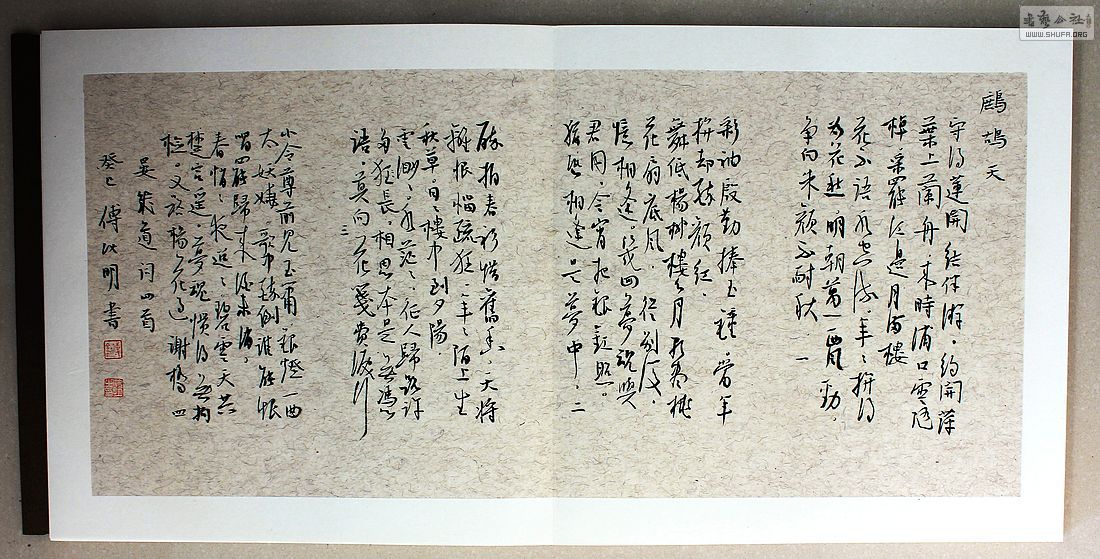 鷓鴣天
守得蓮開結伴游。約開萍
葉上蘭舟。来時浦口雲隨
棹。采罷江邊月滿樓
花不語水空流。年々拚得
为花愁明朝萬一西風勁。
争向朱顔不耐秋 一
彩袖殷勤捧玉鍾當年
拚却醉顔紅。
舞低楊柳樓心月歌盡桃
花扇底風。從别後。
憶相逢。幾回夢魂與
君同。今宵把銀釭照。
猶恐相逢是夢中。二
醉拍春衫惜舊香。天將
離恨惱疏狂。年々陌上生
秋草。日々樓中到夕陽。
雲渺々。水茫々。征人歸路許
多長相思本是無憑
語。莫向花箋費淚行
三
小令尊前見玉簫銀燈一曲
太妖嬈。歌中醉倒誰能恨
唱罷歸来酒未消。
春悄々夜迢々碧雲天共
楚宫遥。夢魂慣得無拘
檢。又踏楊花過謝橋 四
晏幾道词四首
癸巳 傅 明書
書藝公社
WWW.SHUFA.ORG